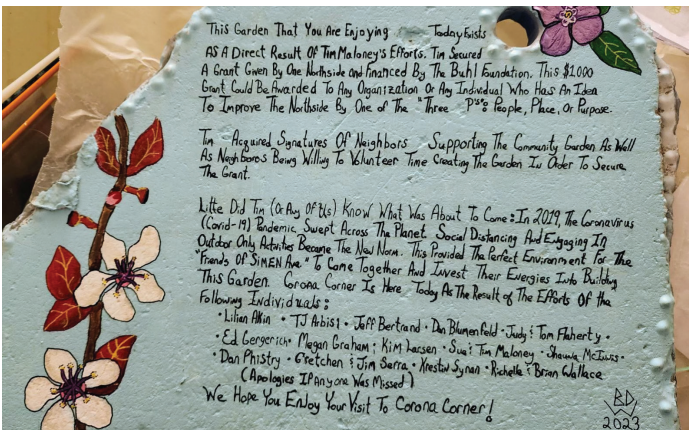 This Garden That You Are Enjoying Today Exists
AS A Direct Result Of Tim Maloney's Efforts. Tim Secured
A Grant Given By One Northside and Financed By The Buhl Foundation. This $1000
Grant Could Be Awarded To Any Organization Or Any Individual Who Has An Idea
To Improve The Northside By One of The "Three P's": People, Place, Or Purpose.
Tim Acquired Signatures Of Neighbors Supporting The Community Garden As Well
As Neighbors Being Willing To Volunteer Time Creating The Garden In Order To Secure
The Grant.
Little Did Tim (Or Any Of Us) Know What Was About To Come: In 2019, The Coronavirus
(Covid-19) Pandemic, Swept Across The Planet. Social Distancing And Engaging In
Outdoor Only Activities Became The New Norm. This Provided The Perfect Environment For The
"Friends Of SiMEN Ave." To Come Together And Invest Their Energies Into Building
This Garden. Corona Corner Is Here Today As The Result of The Efforts Of the
Following Individuals:
• Lilian Akin • TJ Arbis • Jeff Bertrand • Dan Blumenfeld • Judy & Tom Flaherty •
Ed Gergerich • Megan Graham • Kim Larsen • Sue & Tim Maloney • Shauna McInnis •
• Dan Phistry • Gretchen & Jim Serra • Krestin Synan • Richelle & Brian Wallace
(Apologies If Anyone Was Missed)
We Hope You Enjoy Your Visit To Corona Corner!
BD
W
2023